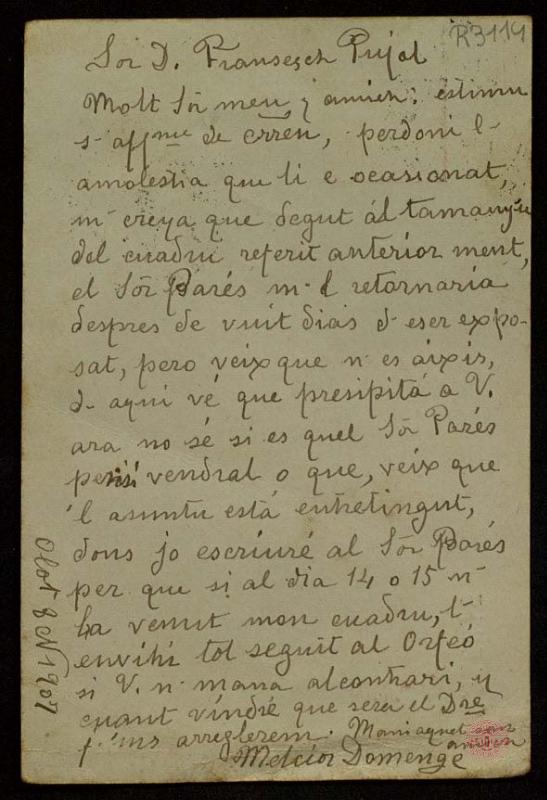 R3114
Sor D. Fransesch Pujol
Molt Sōr meu y amich: estimu
s- affme de crren, perdoni l-
amolestia que li e ocasionat,
m- creya que degut ál tamany
del cuadru referit anterior ment,
el Sōr Parés m- l retornaria
despres de vuit dias d- eser expo-
sat, pero veix que n- es aixis,
d- aqui vé que presipitá a V.
ara no sé si es quel Sōr Parés
pensi vendral o que, veix que
'l asuntu está entretingut,
dons jo escriuré al Sōr Parés
per que si al dia 14 o 15 n-
ha venut mon cuadru, l-
envihi tot seguit al Orfeó
si V. n- mana alcontrari, y
cuant vindré que sera el Dre
f'ins arreglerem. Mani aquet
amich
Melcior Domenge
Olot 8 N 1907